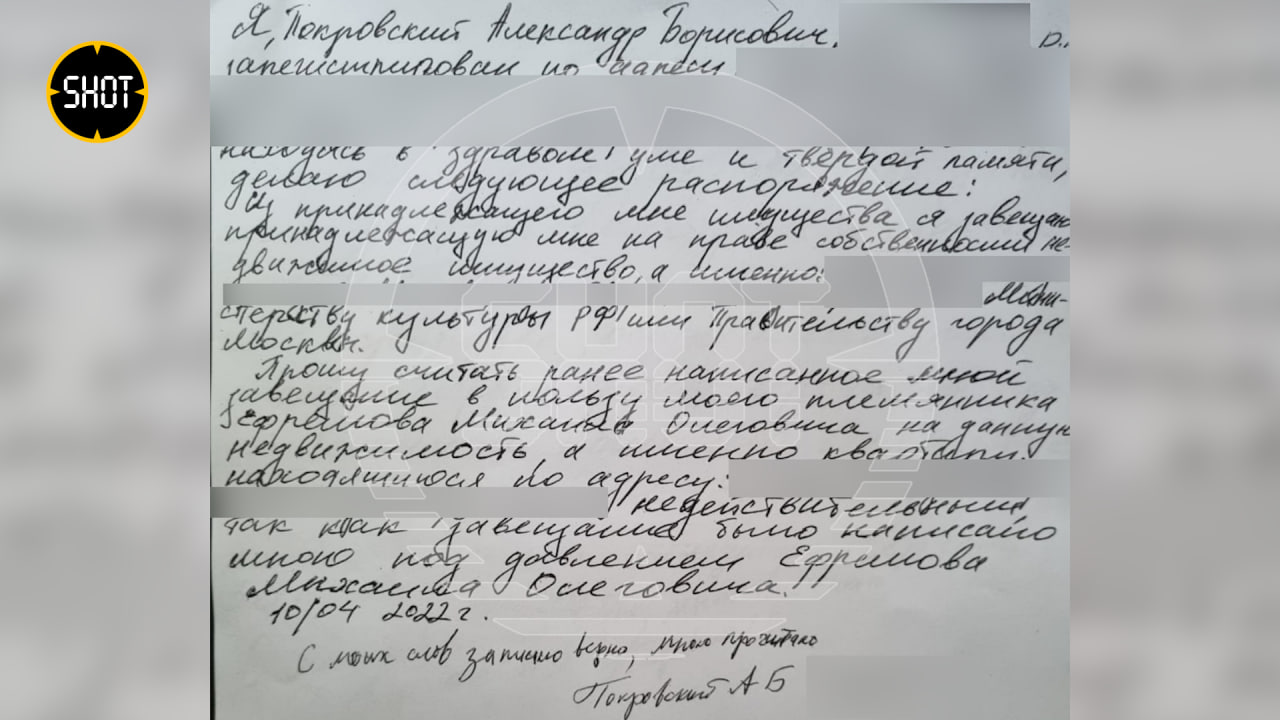 SHOT
Я, Покровский Александр Борисович,
зарегистрирован по адресу
находясь в здравом уме и твёрдой памяти,
делаю следующее распоряжение:
Из принадлежащего мне имущества я завещаю
принадлежащую мне на праве собственности не-
движимое имущество, а именно:
Мини-
стерству культуры РФ или Правительству города
Москвы.
Прошу считать ранее написанное мной
завещание в пользу моего племянника
Ефремова Михаила Олеговича на данную
недвижимость, а именно квартиру
находящиюся по адресу:
недействительным
так как завещание было написано
мною под давлением Ефремова
Михаила Олеговича.
10/04 2022 г.
С моих слов записано верно, мною прочитано
Покровский А Б